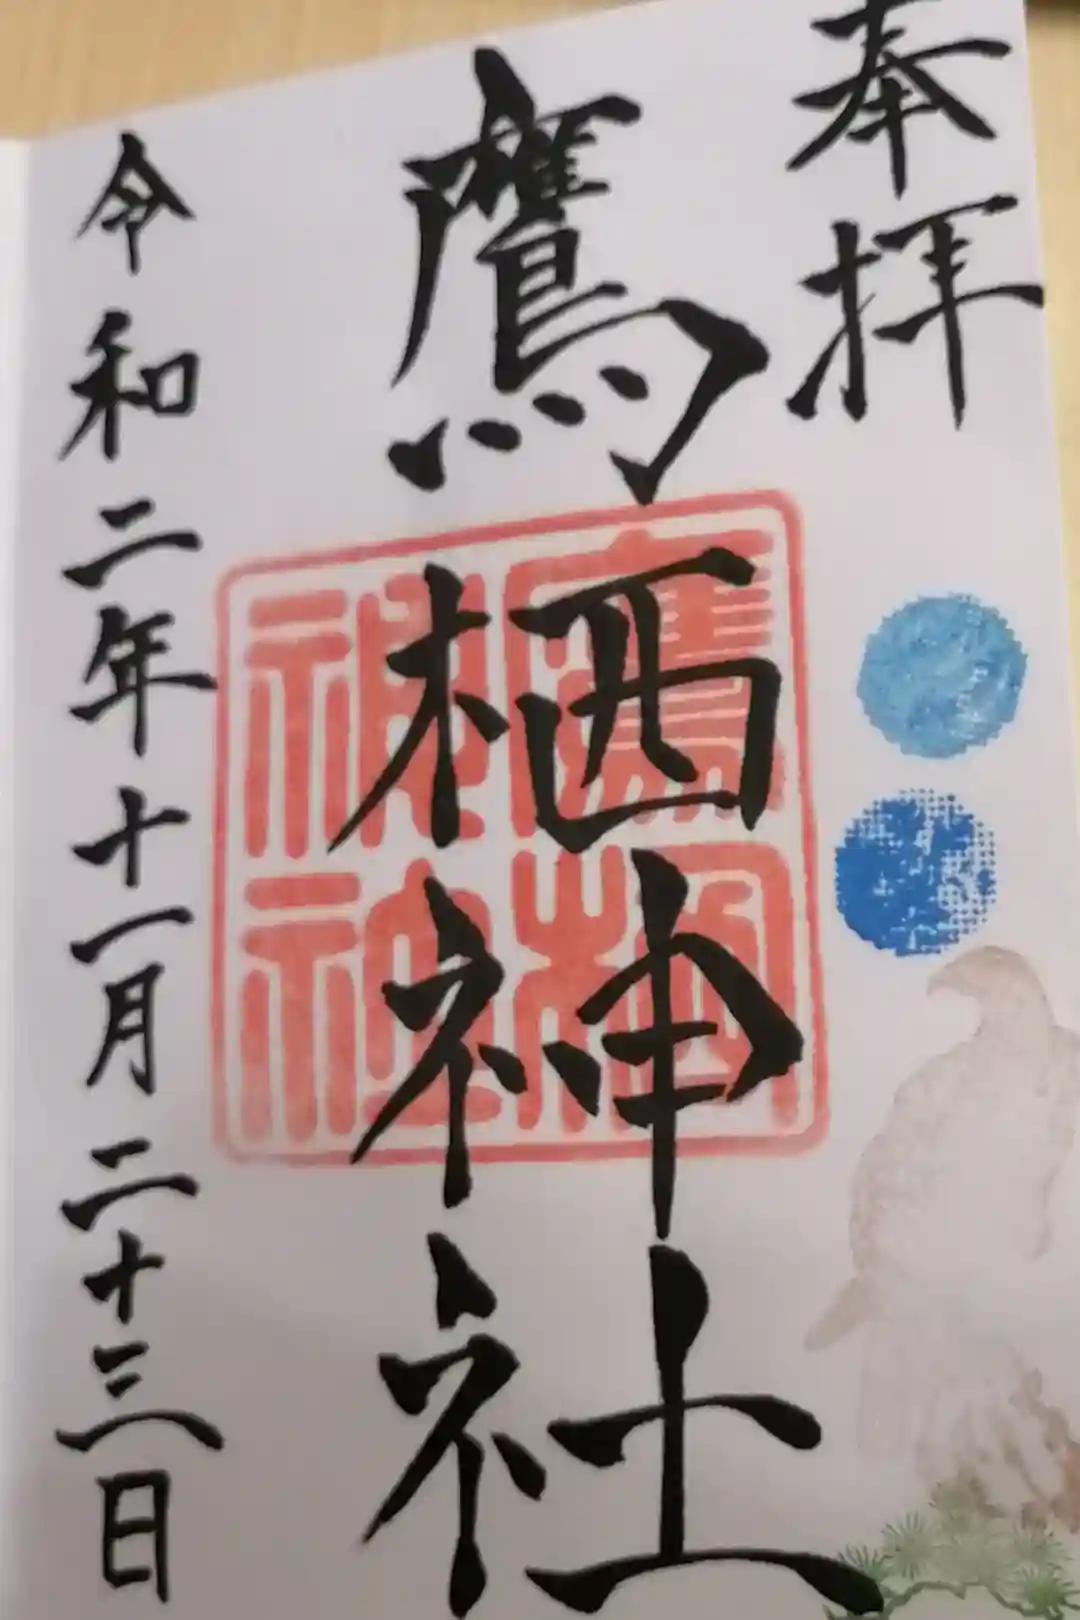 奉拝
鷹栖神社
鷹栖神社
令和二年十一月二十三日